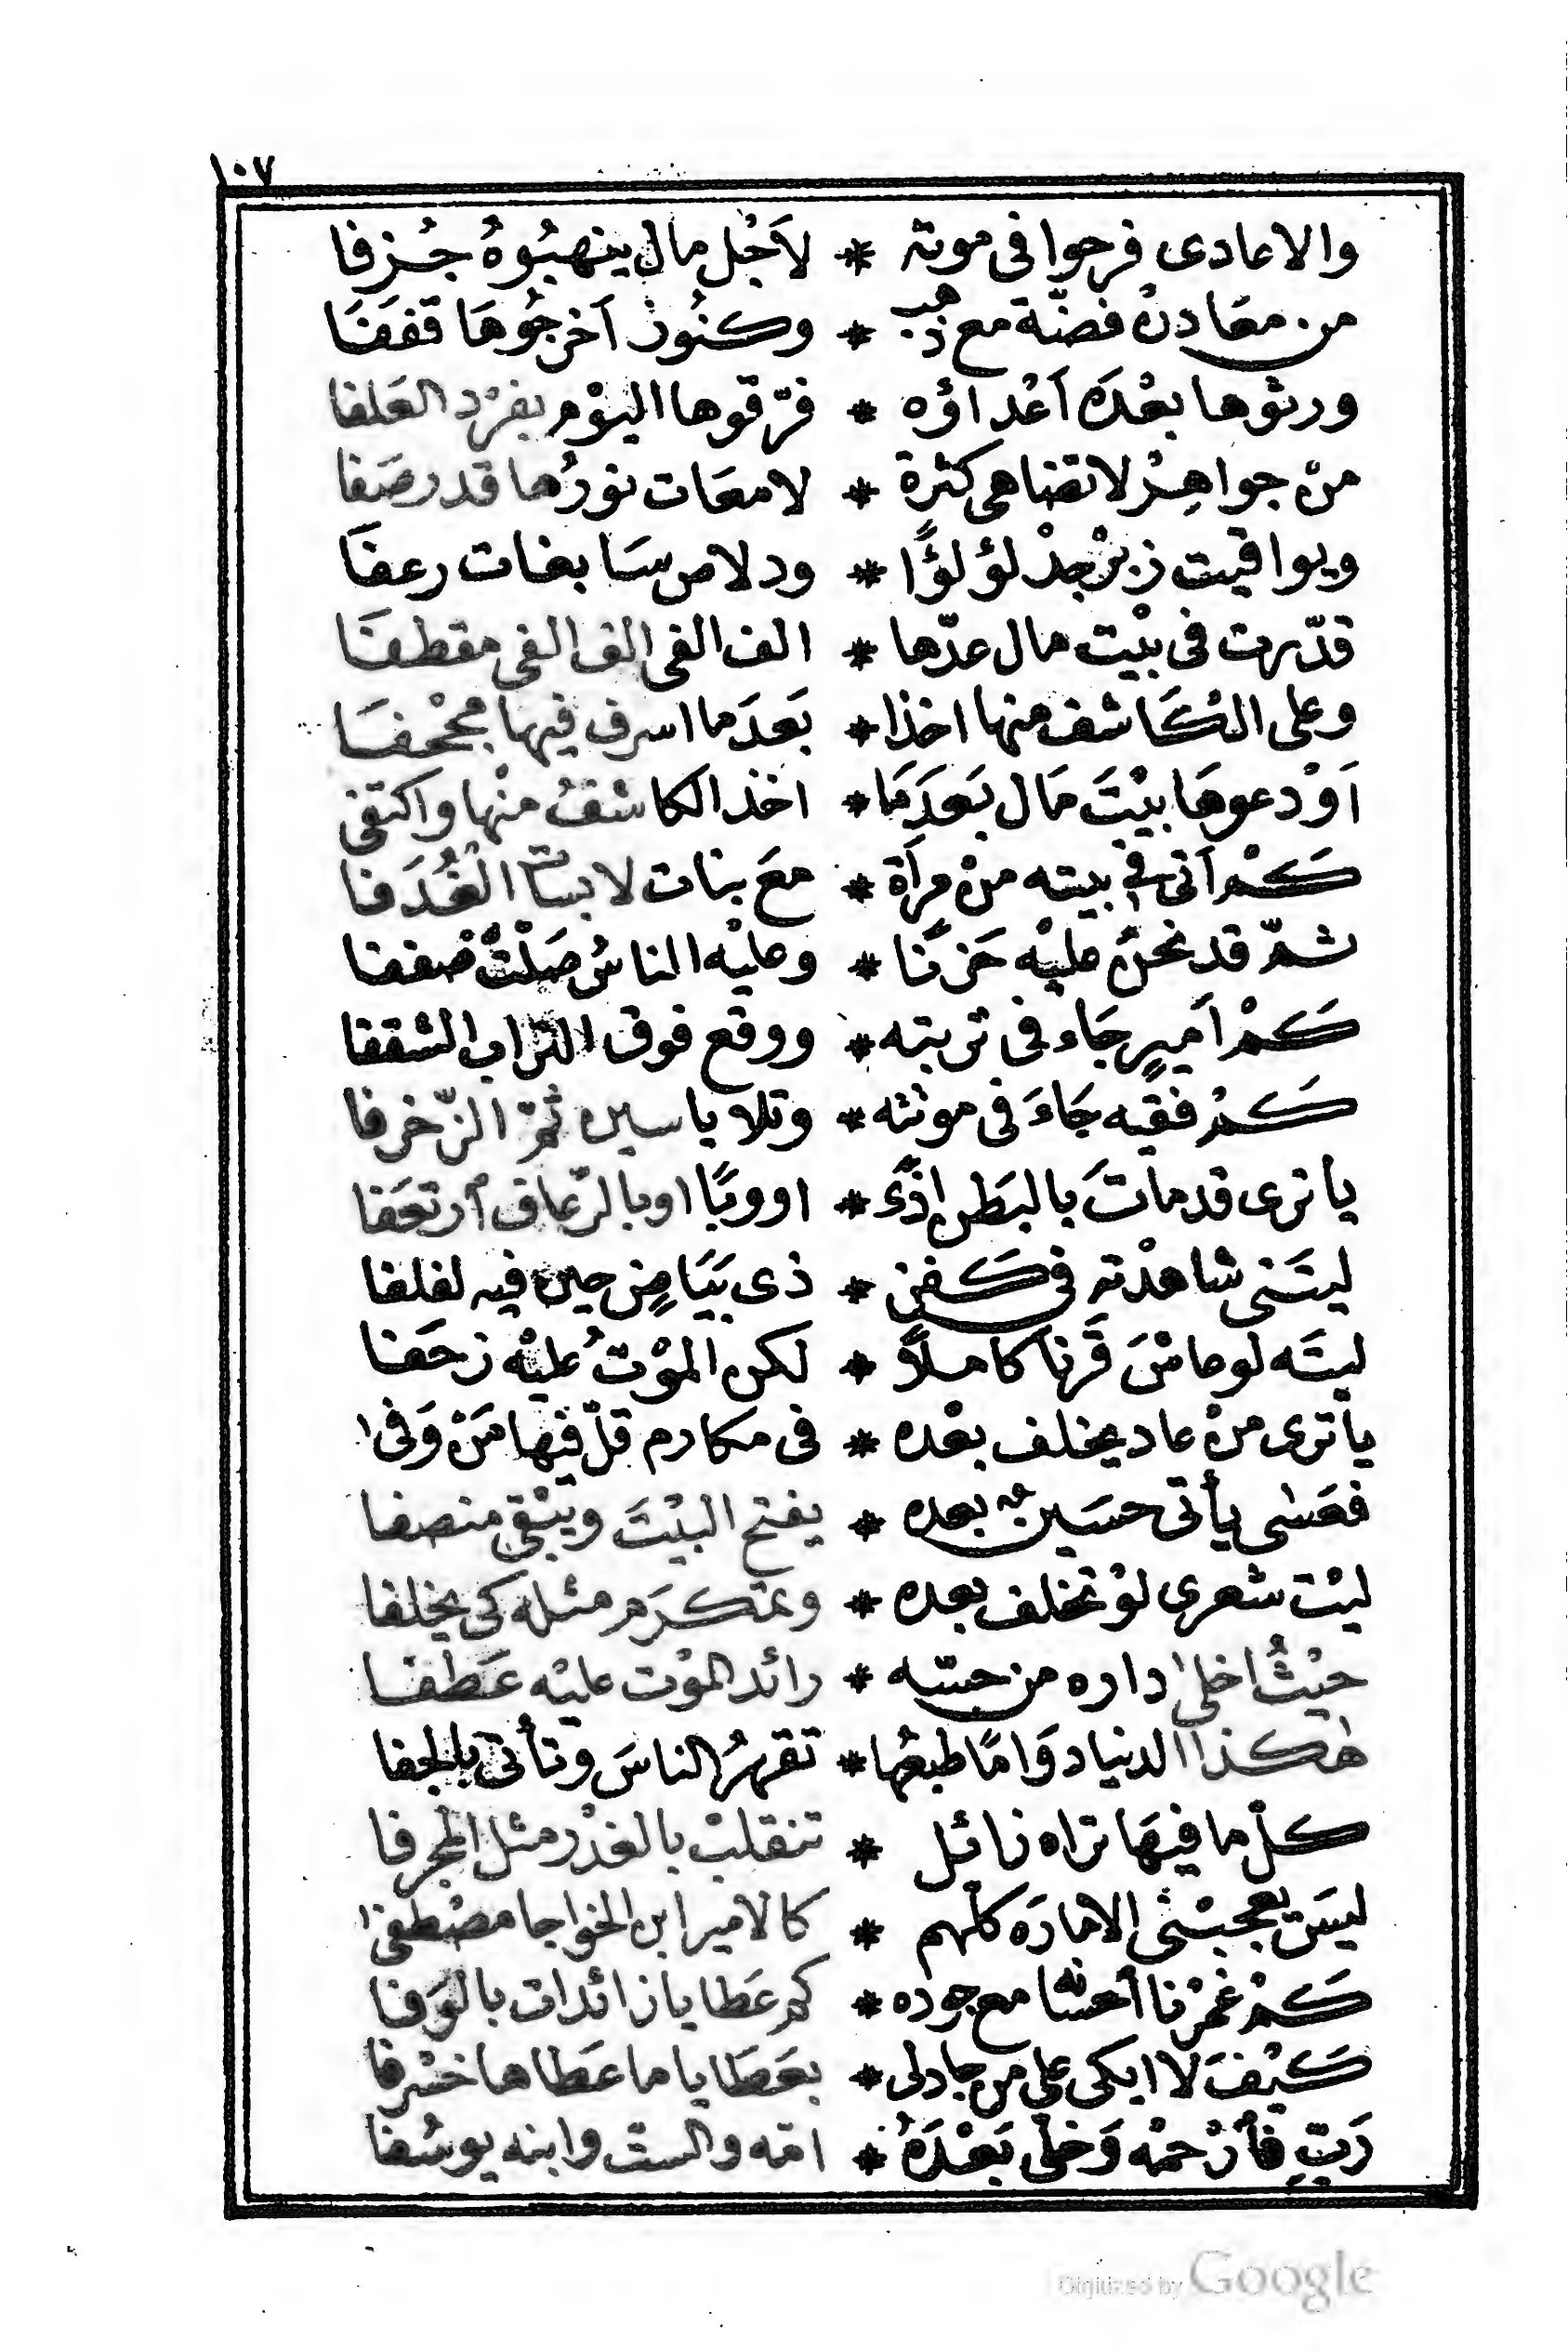 ١٠٧
والاعادى فرحوا فى موته * لاَجْل مال ينهبُوهُ جُزفا
من معَادنْ فضّة مع ذهب * وكنُوز اَخرجُوهَا قفَفَا
ورثوها بعْدَه اَعْداؤه * فرّقوها اليوْم بفرْد العَلفا
منْ جواهِرْ لا تضاهى كثرة * لامعَات نورُها قد رصَفا
ويواقيت زبرْجدْ لؤلؤًا * ودلاص سَابغات رعفَا
قدّرت فى بيْت مال عدّها * الف الفى الف الفى مقطفَا
وعلى الكَاشف منها اخذا * بَعدَما اسرف فيها مجْحفَا
اَوْدعوهَا بيْتَ مَال بَعدَمَا * اخذ الكاشفُ منْها واكتفى
كَمْ اَتى فى بيته منْ مرأة * معَ بنات لابسَاتْ الغُدَفا
ثمّ قد نحنُ عليْه حَزَنا * وعليْه الناسُ صَلّتْ صُففا
كَمْ اَميرٍ جَاء فى تربته * ووقع فوق التراب الشقفا
كَمْ فقيه جَاءَ فى موتته * وتلا ياسين ثمّ الزّخرفا
يا ترى قد ماتَ بالبَطن اِذًى * او وبًا او بالرّعاف اْرتعَفا
ليتَنى شاهدْته فى كَفن * ذى بَيَاضٍ حين فيه لفلفا
ليتَه لو عاشَ قَرنًا كاملاً * لكن الموْتُ عليْه زحَفا
يا ترى منْ عاد يخلف بعْده * فى مكارم قلّ فيها مَنْ وَفى
فعَسٰى يأتى حسَين بعده * يفتح البيْتَ ويَبْقى منصفا
ليْت شعرى لوْ تخلف بعده * وتمتكرَم مثله كى يخلفا
حيْثُ اخلى داره من حسّه * رائد الموْت عليْه عَطفا
هٰكذا الدنيا دوَامًا طبعُها * تقهرُ الناسَ وتأتى بالجفا
كلّ ما فيهَا تراه زائل * تنقلبْ بالغدْر مثل المجرفا
ليسَ يعجبْنى الامارَه كلّهم * كالامير ابن الخواجا مصْطفى
كَمْ غمرْنا أحسَانه مع جوده * كم عَطايا زائدات بالوَفا
كَيْفَ لا ابكى على من جادلى * بعَطَايا ما عَطاها خسْرفا
رَبِّ فأرْحمْه وَخلّى بَعْدَهُ * امّه والستّ وابنه يوسُفا
Digitized by Google